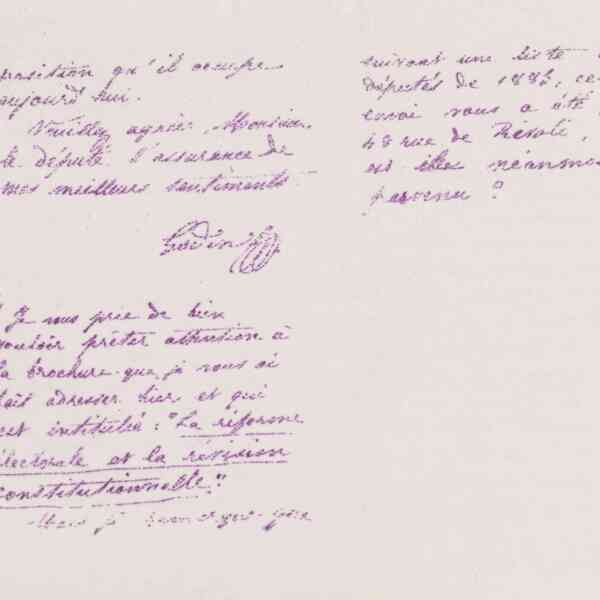 position qu'il occupe
aujourd'hui.
Veuillez agréer, Monsieur
le député l'assurance de
mes meilleurs sentiments
Godin
Je vous prie de bien
vouloir prêter attention à
la brochure que je vous ai
fait adresser hier et qui
est intitulée : "La réforme
électorale et la révision
constitutionnelle"
Mais je
suivant une liste
députés de 1882, cet
envoi vous a été
48 rue de Rivoli,
est-il néanmoins
parvenu ?